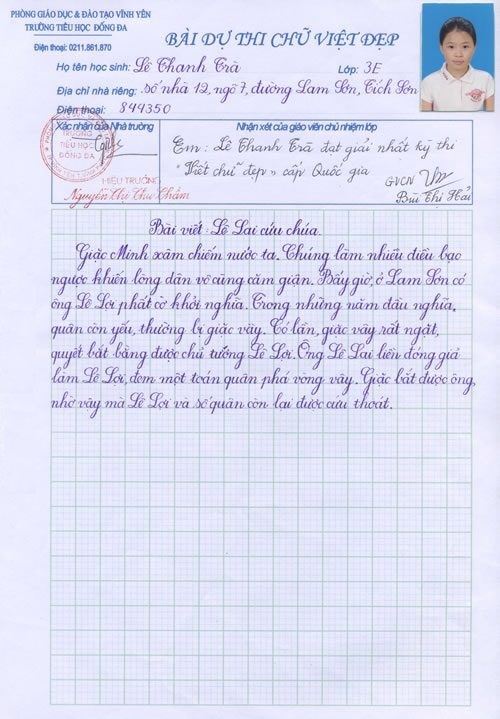 PHÒNG GIÁO DỤC & ĐÀO TẠO VĨNH YÊN
TRƯỜNG TIỂU HỌC ĐỐNG ĐA
Điện thoại: 0211.861.870
BÀI DỰ THI CHỮ VIỆT ĐẸP
Họ tên học sinh: Lê Thanh Trà Lớp: 3E
Địa chỉ nhà riêng: số nhà 12, ngõ 7, đường Lam Sơn, Tích Sơn
Điện thoại: 844350
Xác nhận của Nhà trường
Nhận xét của giáo viên chủ nhiệm lớp
TRƯỜNG
TIỂU HỌC
ĐỐNG ĐA
Em: Lê Thanh Trà đạt giải nhất kỳ thi
"Viết chữ đẹp" cấp Quốc gia
HIỆU TRƯỞNG
Nguyễn Thị Thu Thắm
GVCN
Bùi Thị Hải
Bài viết: Lê Lai cứu chúa.
Giặc Minh xâm chiếm nước ta. Chúng làm nhiều điều bạo
ngược khiến lòng dân vô cùng căm giận. Bấy giờ, ở Lam Sơn có
ông Lê Lợi phất cờ khởi nghĩa. Trong những năm đầu nghĩa
quân còn yếu, thường bị giặc vây. Có lần, giặc vây rất ngặt,
quyết bắt bằng được chủ tướng Lê Lợi. Ông Lê Lai liền đóng giả
làm Lê Lợi, đem một toán quân phá vòng vây. Giặc bắt được ông,
nhờ vậy mà Lê Lợi và số quân còn lại được cứu thoát.